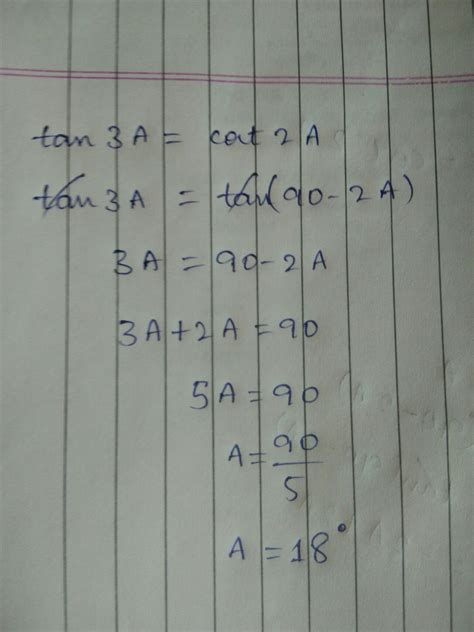 tan 3A = cot 2A
tan 3A = tan(90-2A)
3A = 90-2A
3A+2A = 90
5A = 90
A = 90/5
A = 18°